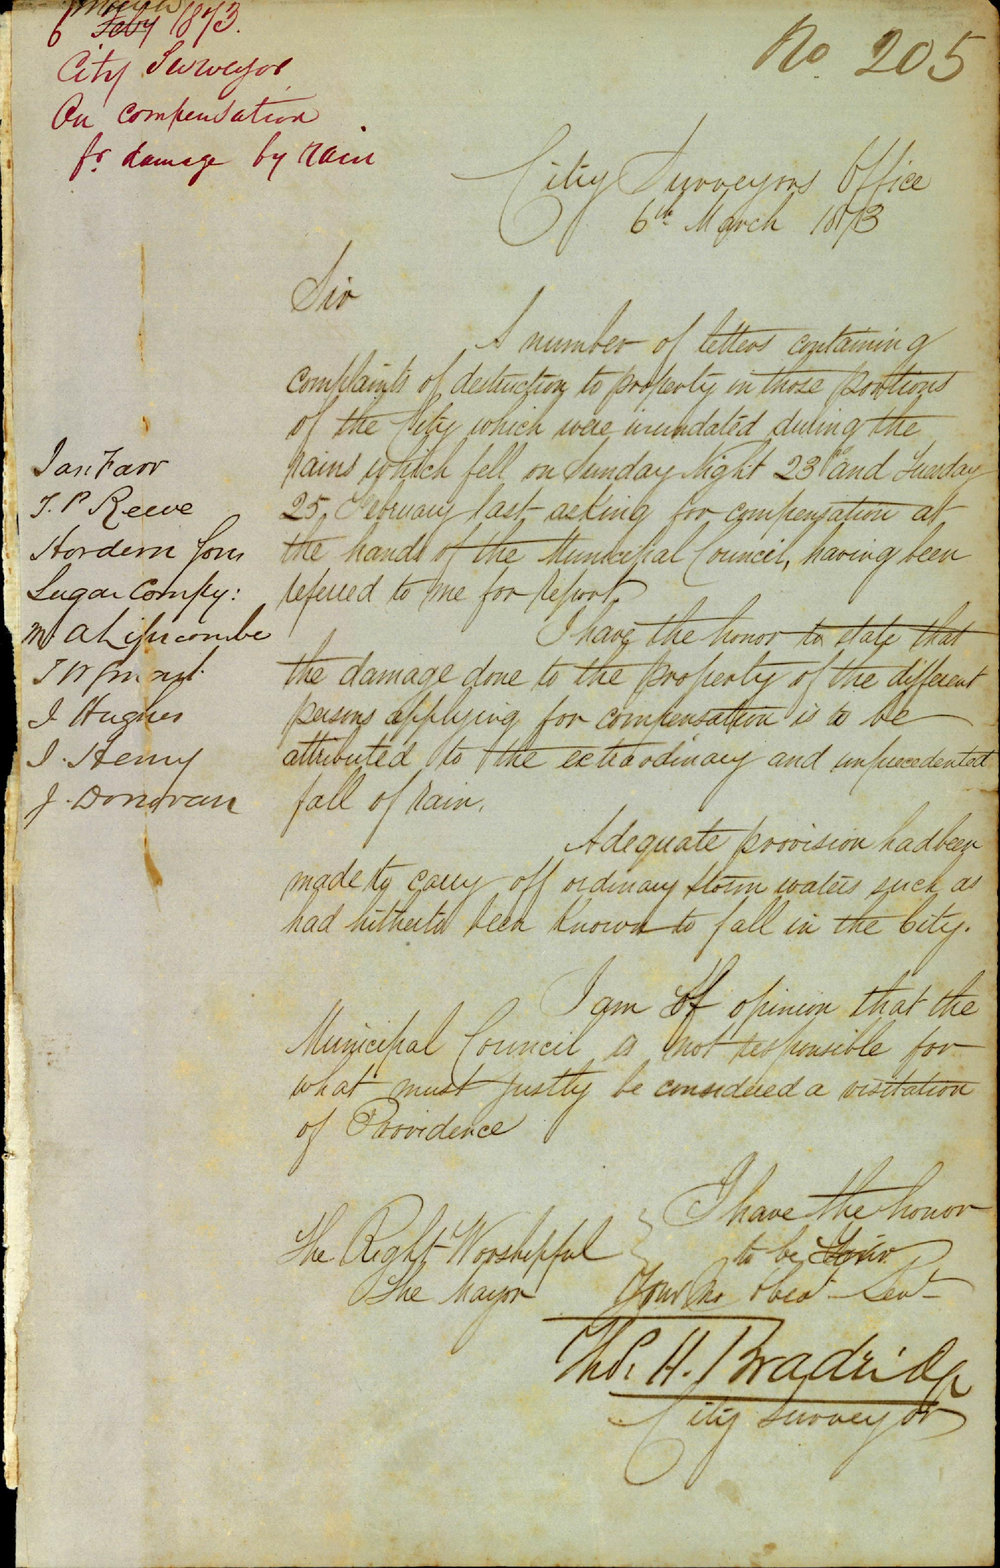 March
6 Feby 1873.
City Surveyor
On compensation
for damage by rain
No 205
City Surveyors Office
6th March 1873
Sir
A number of letters containing
complaints of destruction to property in those portions
of the City which were inundated during the
rains which fell on Sunday Night 23rd and Tuesday
25. February last asking for compensation at
the hands of the Municipal Council, having been
referred to me for report,
I have the honor to state that
the damage done to the property of the different
persons applying for compensation is to be
attributed to the extraordinary and unprecedented
fall of rain.
Adequate provision had been
made to carry off ordinary storm waters such as
had hitherto been known to fall in the City.
I am of opinion that the
Municipal Council is not responsible for
what must justly be considered a visitation
of Providence
I have the honor
to be Your
Your Mo Obed Sevt
The Right Worshipful
The Mayor
Thos. H. Bradridge
City Surveyor
Jas. Farr
T. P. Reeve
Hordern Sons
Sugar Compy:
M. A. Lipscombe
J W
J Hughes
J. Henry
J. Donovan